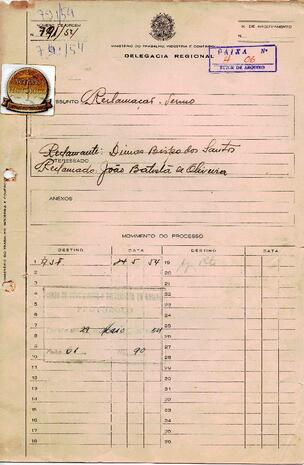 791/54
NÚMERO DE ORDEM
N. DE ARQUIVAMENTO
N.º 791/54
N.
791/54
MINISTÉRIO DO TRABALHO, INDÚSTRIA E COMÉRCIO
DELEGACIA REGIONAL
CAIXA Nº
4 06
SETOR DE ARQUIVO
ASSUNTO Reclamacao - Termo
Reclamante: Dimas Bispo dos Santos
INTERESSADO
Reclamado: João Batista de Oliveira
ANEXOS
MOVIMENTO DO PROCESSO
DESTINO DATA DESTINO DATA
1 24 5 54 19
2 20
3 21
4 22
5 23
PROTOCOLO
6 24
7 29 Maio 54 25
8 26
9 27
10 28
11 29
12 30
13 31
14 32
15 33
16 34
17 35
18 36
MINISTÉRIO DO TRABALHO, INDÚSTRIA E COMÉRCIO